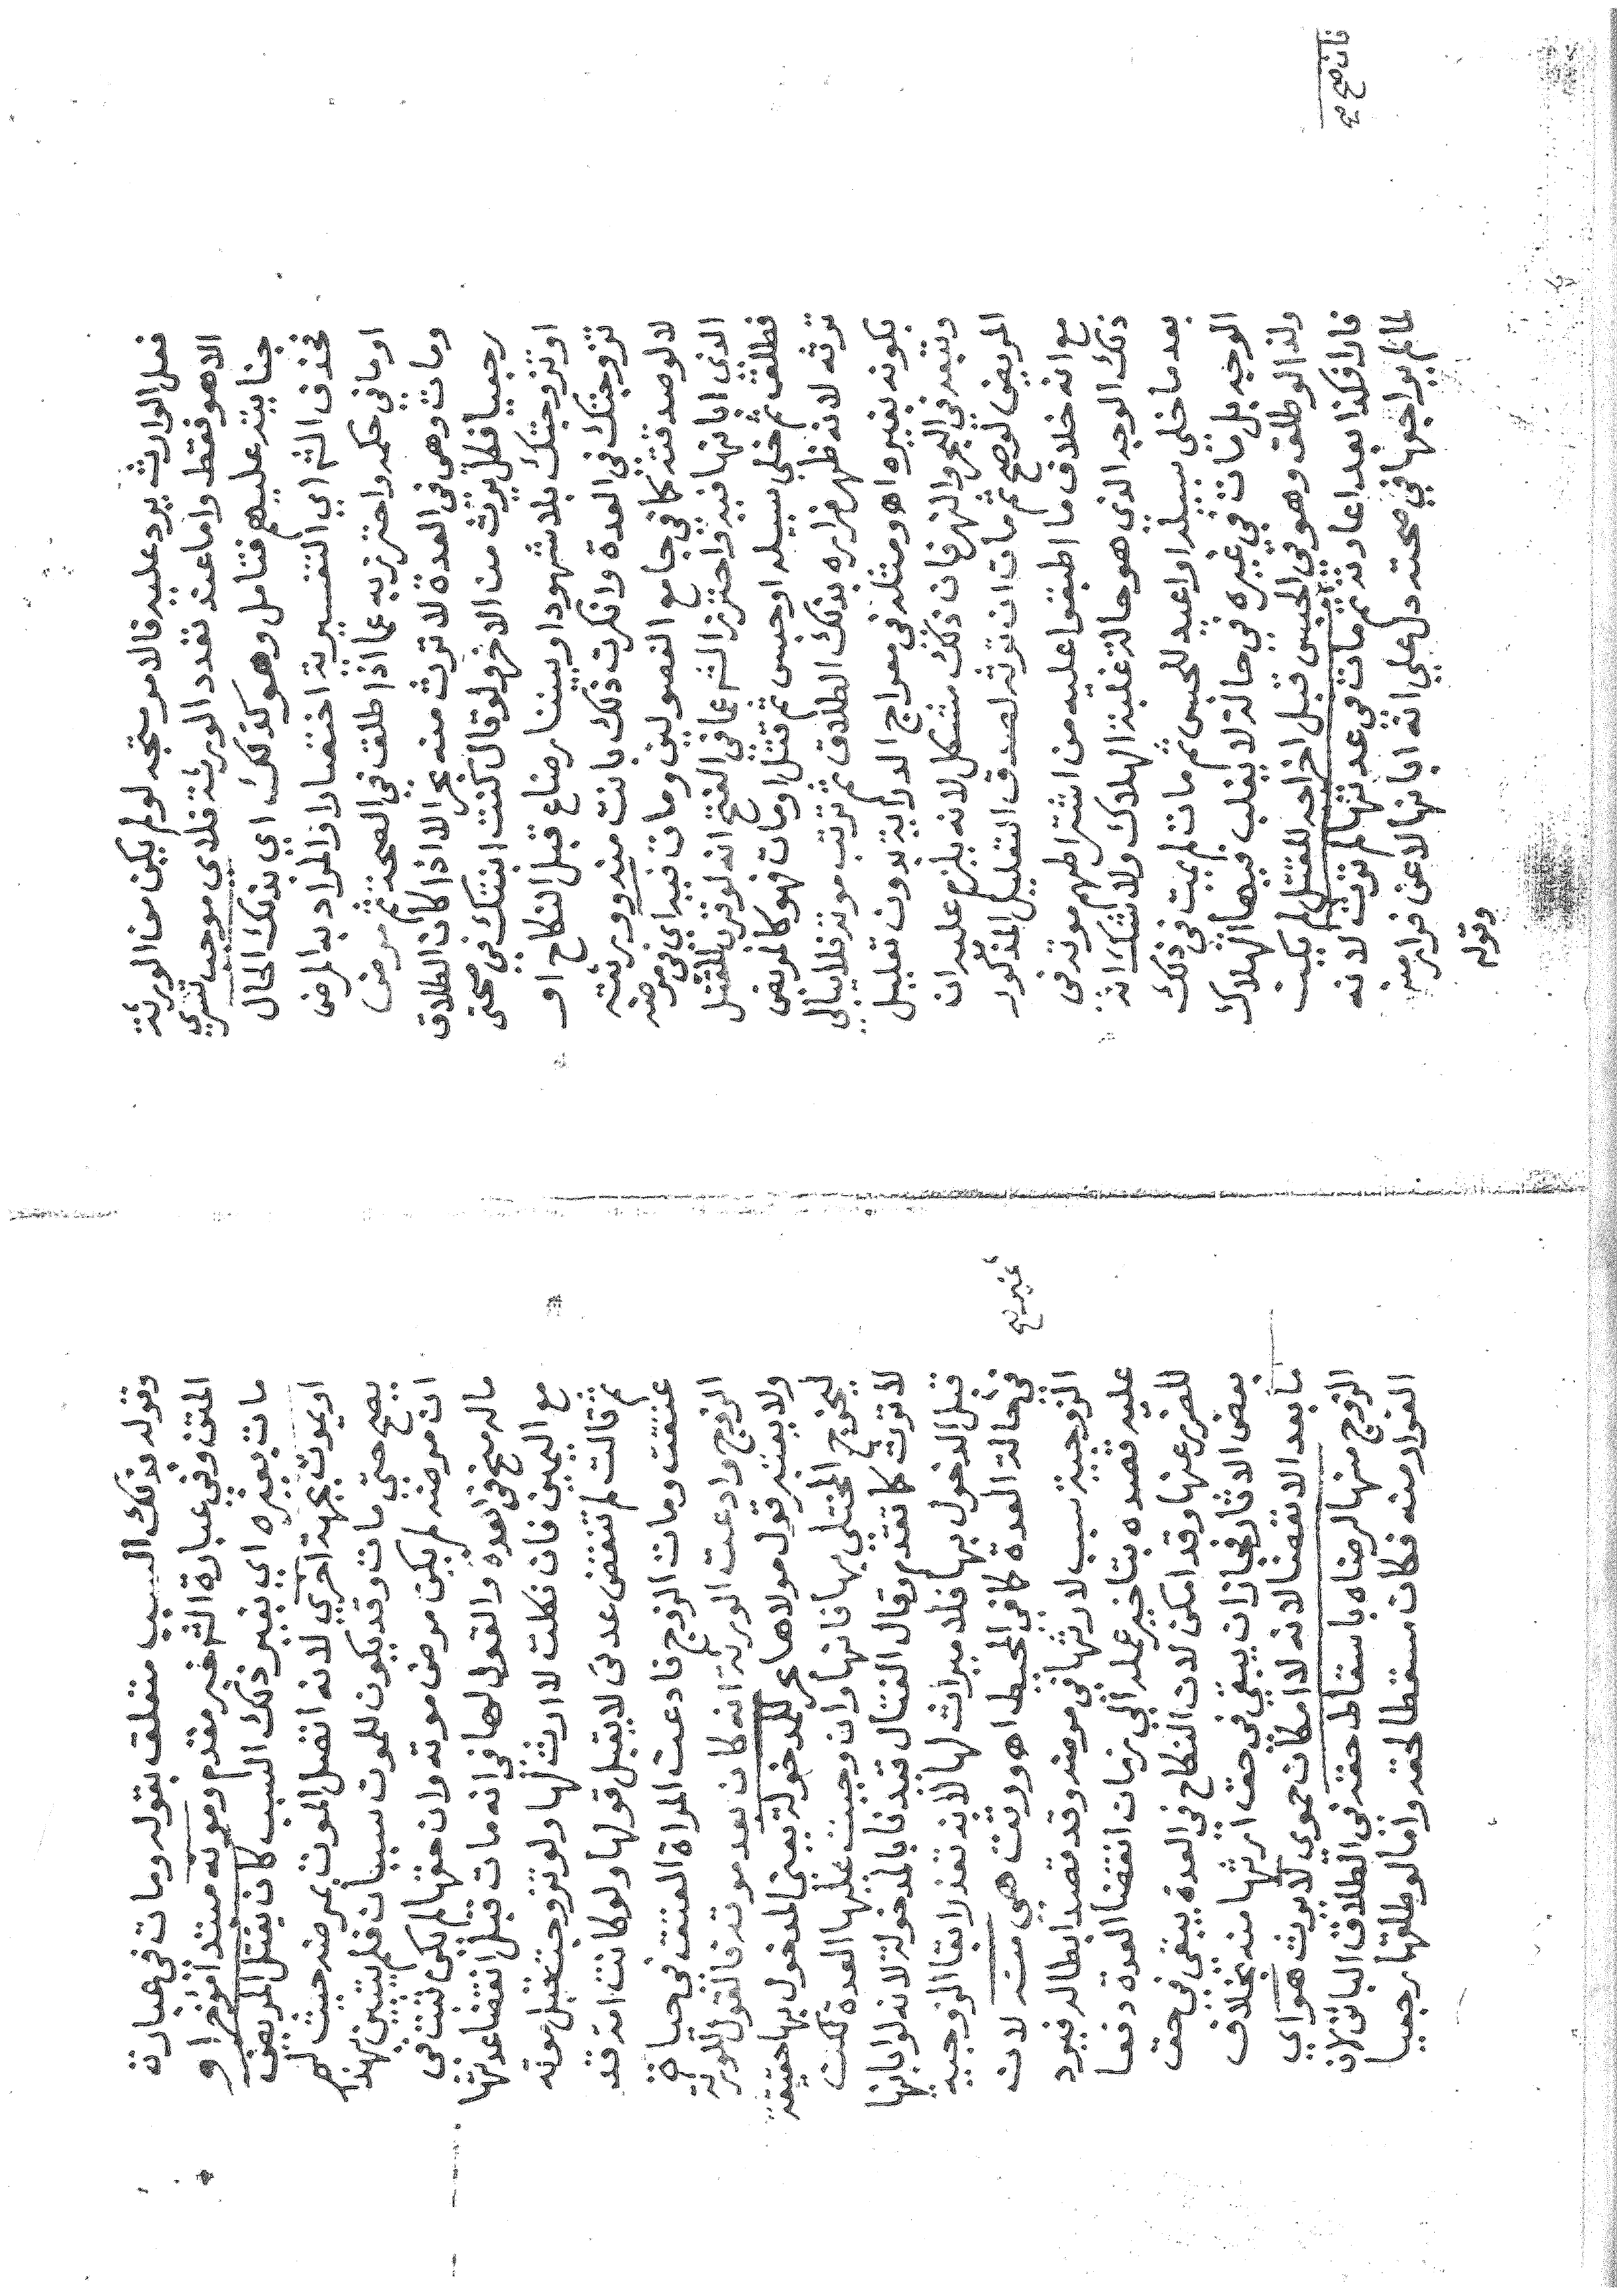 فعل الوارث يرد عليه فالامر متجه لو لم يكن من الورثة
الا هو فقط واما عند تعدد الورثة فلا اي موجب تسري
جنايته عليهم فتامل وهو كذلك اي بذلك الحال
فحذف الش اي التفسيرية اختصارا اذ المراد به المرض
او ما في حكمه واحترز به عما اذا طلق في الصحة ثم مرض
ومات وهي في العدة لا ترث منه بحر الا اذا كان الطلاق
رجعيا فكل يرث من الاخر ولو قال كنت ابنتك في صحتي
او تزوجتك بلا شهود او بيننا رضاع قبل النكاح او
تزوجتك في العدة وانكرت ذلك بانت منه وورثته
لا لو صدقته كما في جامع الفصولين ومات فيه اي في مرضه
الذي ابانها فيه واحترز الش عما في الفتح انه لو قرب للقتل
فطلق ثم خلي سبيله او حبس ثم قتل او مات فهو كالمريض
ترثه لانه ظهر فراره بذلك الطلاق ثم ترتب موته فلا يبالى
بكونه بغيره اهـ ومثله في معراج الدراية بدون تعليل
وتبعه في البحر والنهر فان ذلك مشكل لانه يلزم عليه ان
المريض لو صح ثم مات ان ترثه لصدق التعليل المذكور
مع انه خلاف ما اطبقوا عليه من اشتراطهم موته في
ذلك الوجه الذي هو حالة غلبة الهلاك ولا شك انه
بعد ما خلي سبيله او اعيد للحبس ثم مات لم يمت في ذلك
الوجه بل مات في غيره في حالة لا يغلب فيها الهلاك
ولذا لو طلق وهو في الحبس قبل اخراجه للقتل لم يكن
فارا فكذا بعد اعادته ثم مات في عدتها لم ترث لانه
لما لم يراجعها في صحته دل علي انه ابانها لا عن فرار منه
وقوله
صح نهان
وقوله بذلك السبب متعلق بقوله ومات في عبارة
المتن وفي عبارة الش خبر مقدم وموته مبتدا مؤخر او
مات بغيره اي بغير ذلك السبب كان يقتل المريض
او يموت بجهة اخري لانه اتصل الموت بمرضه حيث لم
يصح حتي مات وقد يكون للموت سببان فلم يتبين بهذا
ان مرضه لم يكن مرض موته وان حقها لم يكن ثبت في
ماله منح في العدة والقول لها في انه مات قبل انقضا عدتها
مع اليمين فان نكلت لا ارث لها ولو تزوجت قبل موته
ثم قالت لم تنقض عدتي لا يقبل قولها ولو كانت امة قد
عتقت ومات الزوج فادعت المراة العتق في حياة
الزوج وادعت الورثة انه كان بعد موته فالقول للورثة
ولا يعتبر قول مولاها بحر للمدخولة يعني المدخول بها حقيقة
ليخرج المختلي بها فانها وان وجبت عليها العدة لكنت
لا ترث كما تقدم وقال القتال قيدنا بالمدخولة لانه لو ابانها
قبل الدخول بها فلا ميراث لها لانه تعذر ابقا الزوجية
في حالة العدة كما في المحيط اهـ ورثت هي منه لان
الزوجية سبب لارثها في مرضه وقد قصد ابطاله فيرد
عليه قصده بتاخير عمله الي زمان انقضا العدة دفعا
للضرر عنها وقد امكن لان النكاح في العدة يبقي في حق
بعض الاثار فجاز ان يبقي في حق ارثها منه بخلاف
ما بعد الانقضا لانه لا امكان حموي لا يرث هو اي
الزوج منها لرضاه باسقاط حقه في الطلاق البائن لان
الفرار منه فكان مسقطا لحقه واما لو طلقها رجعيا